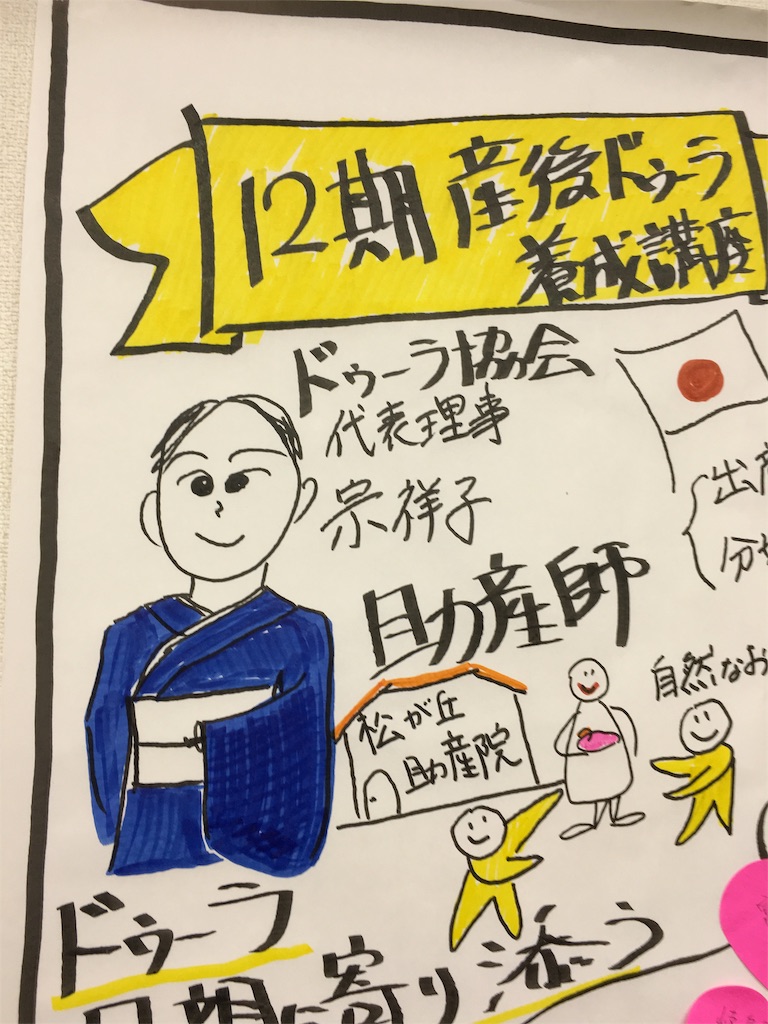 12期 産後ドゥーラ
養成講座
ドゥーラ協会
代表理事
宗祥子
出産
助産師
自然なお
松が丘
助産院
ドゥーラ
に寄り添う